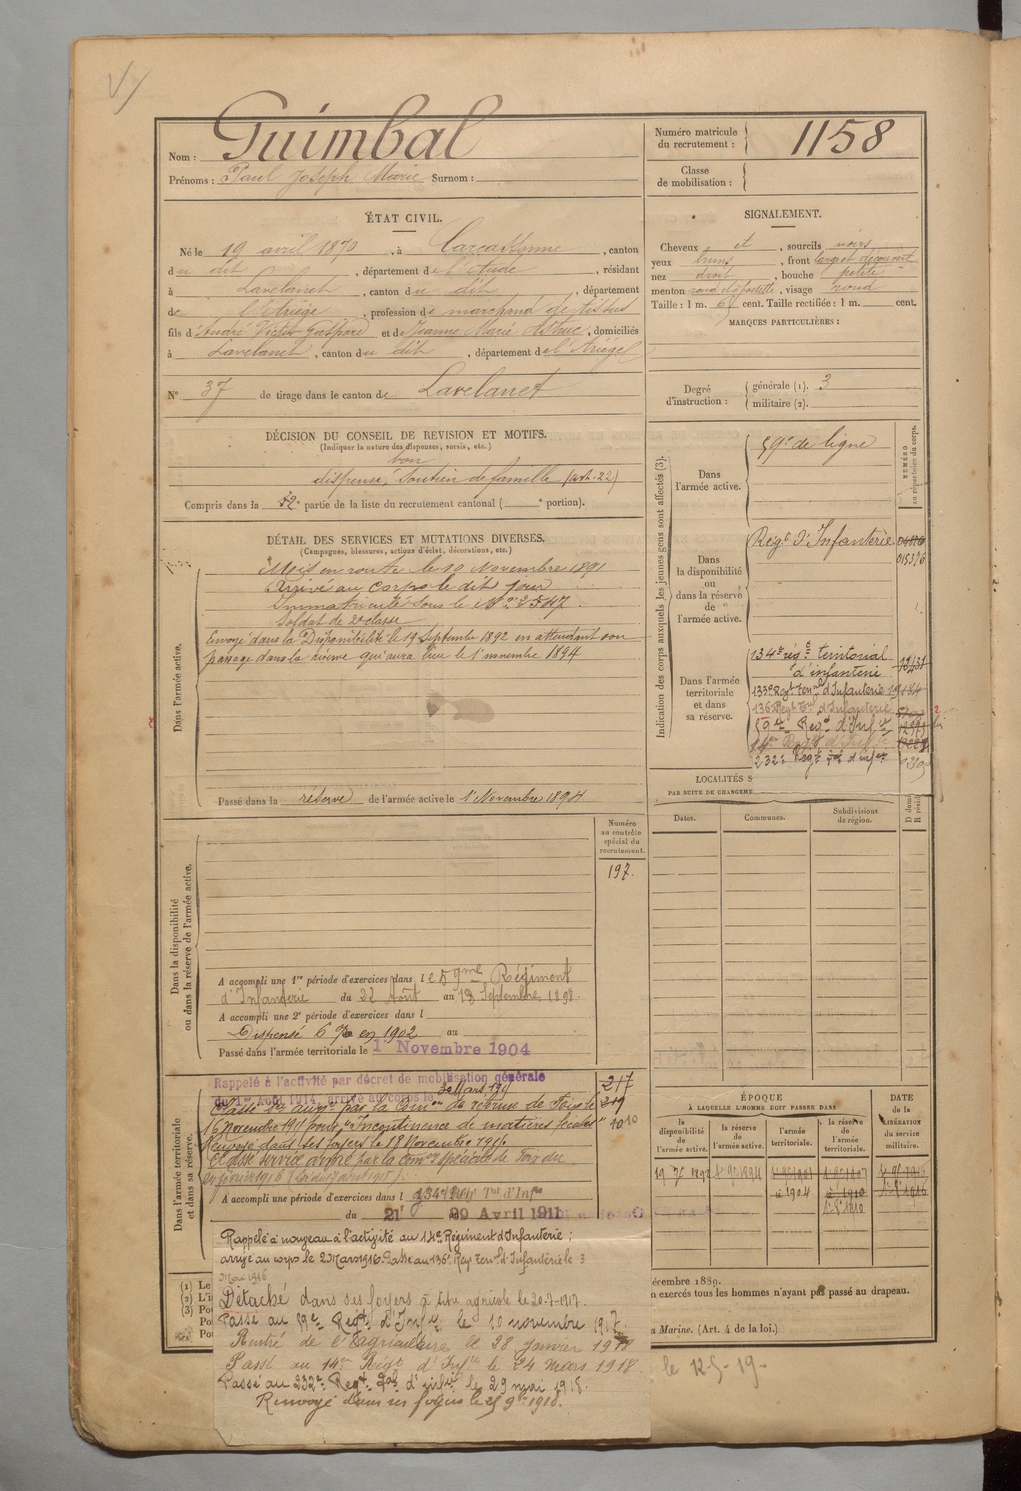 Nom : Guimbal
Prénoms : Paul Joseph Marie Surnom :
Numéro matricule du recrutement : 1158
Classe de mobilisation :
ÉTAT CIVIL.
Né le 19 avril 1870, à Carcassonne, canton
du dit, département de l'Aude, résidant
à Lavelanet, canton du dit, département
de l'Ariège, profession de marchand de tissus
fils d'André Victor Gaspard et de Jeanne Marie, domiciliés
à Lavelanet, canton du dit, département de l'Ariège
N° 37 de tirage dans le canton de Lavelanet
SIGNALEMENT.
Cheveux et, sourcils noirs
yeux bruns, front large et découvert
nez droit, bouche petite
menton rond et à fossette, visage rond
Taille : 1 m. 6 cent. Taille rectifiée : 1 m. cent.
MARQUES PARTICULIÈRES :
Degré d'instruction : générale (1). 3
militaire (2).
DÉCISION DU CONSEIL DE REVISION ET MOTIFS.
(Indiquer la nature des dispenses, sursis, etc.)
bon
dispensé, soutien de famille (art. 22)
Compris dans la 52e partie de la liste du recrutement cantonal ( e portion).
DÉTAIL DES SERVICES ET MUTATIONS DIVERSES.
(Campagnes, blessures, actions d'éclat, décorations, etc.)
Dans l'armée active.
Mis en route le 10 Novembre 1891
Arrivé au corps le dit jour
Immatriculé sous le N° 2547.
Soldat de 2e classe
Envoyé dans la Disponibilité le 19 Septembre 1892 en attendant son
passage dans la réserve qui aura lieu le 1er novembre 1894
Passé dans la réserve de l'armée active le 1er Novembre 1894
Indication des corps auxquels les jeunes gens sont affectés (3).
NUMÉRO au répertoire du corps.
Dans l'armée active.
59e de ligne
Dans la disponibilité ou dans la réserve de l'armée active.
Regt d'Infanterie
015376
Dans l'armée territoriale et dans sa réserve.
134e rég. territorial d'infanterie 12431
133e Regt terral d'Infanterie
136 Regt Teral d'Infanterie
59e Regt d'Infie
14e Regt d'Infie
232e Regt d'infie
LOCALITÉS S
PAR SUITE DE CHANGEME
Dates. Communes. Subdivisions de région.
Dans la disponibilité ou dans la réserve de l'armée active.
Numéro au contrôle spécial du recrutement.
197.
A accompli une 1re période d'exercices dans le 59me Régiment
d'Infanterie du 22 Août au 18 Septembre 1898.
A accompli une 2e période d'exercices dans l
Dispensé en 1902 au
Passé dans l'armée territoriale le 1er Novembre 1904
Dans l'armée territoriale et dans sa réserve.
Rappelé à l'activité par décret de mobilisation générale
du 1er Août 1914, arrivé au corps le
217
1010
Classé par la Comon de réforme de Foix le
16 Novembre pour "incontinence de matières fécales"
Renvoyé dans ses foyers le 18 Novembre
Classé service armé par la Comon spéciale de Foix du
A accompli une période d'exercices dans l 134e Rég Tal d'Infie
du 21 au 29 Avril 1911
Rappelé à nouveau à l'activité au 14e Régiment d'Infanterie ;
arrivé au corps le 2 Mars 1916. Passé au 136e Reg Terral d'Infanterie le 3
Mai 1916
Détaché dans ses foyers à titre agricole le 20-7-1917.
Passé au 59e Regt d'Infie le 10 novembre 1917.
Rentré de l'Agriculture le 28 Janvier 1918
Passé au 14e Régt d'Infie le 24 mars 1918.
Passé au 232e Regt d'infie le 29 mai 1918.
Renvoyé dans ses foyers le 25 9bre 1918.
ÉPOQUE
À LAQUELLE L'HOMME DOIT PASSER DANS
DATE de la LIBÉRATION du service militaire.
la disponibilité de l'armée active.
la réserve de l'armée active.
l'armée territoriale.
la réserve de l'armée territoriale.
(1) Le
(2) L'i
(3) Po
Po
écembre 1889.
n exercés tous les hommes n'ayant pas passé au drapeau.
a Marine. (Art. 4 de la loi.)
le 12-5-19-